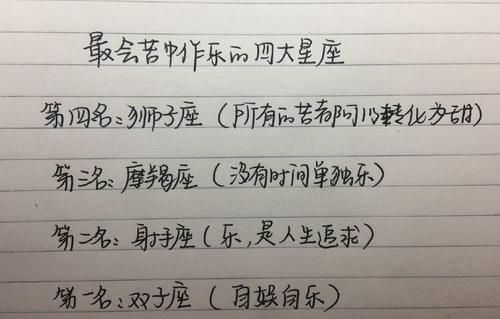 最会苦中作乐的四大星座
第四名:狮子座(所有的苦都可以转化为甜)
第三名:摩羯座(没有时间单独乐)
第二名:射手座(乐,是人生追求)
第一名:双子座(自娱自乐)